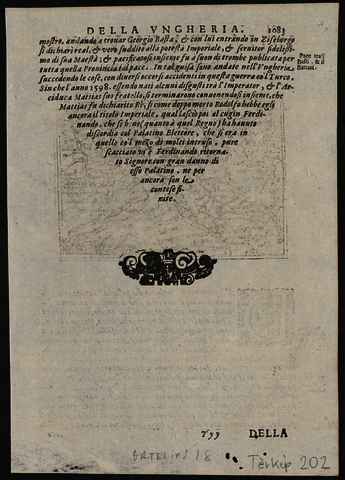 DELLA VNGHERIA.
mostro, andando à trouar Georgio Basta, & con lui entrando in Zisesborgo
si dichiarò reale, & vero suddito alla potestà Imperiale, & seruitor fidelissi-
mo di sua Maestà; & pacificatosi insieme fu a suon di trombe publicata per
tutta quella Prouincia la pace. In tal guisa sono andate nell'Vngheria
succedendo le cose, con diuersi accorsi accidenti in questa guerra col Turco.
Sin che l'anno 1598. essendo nati alcuni disgusti tra l'Imperator, & l'Ar-
ciduca Mattias suo fratello, si terminarono conuenendosi insieme, che
Mattias fu dichiarito Rè, si come doppo morto Rodolfo hebbe egli
ancora il titolo Imperiale, qual lasciò poi al cugin Ferdi-
nando, che se bene quanto à quel Regno s'hà hauuto
discordia col Palatino Elettore, che si era in
quello col mezo di molti intruso, pure
scacciato n'è Ferdinando ritorna-
to Signore con gran danno di
esso Palatino, ne per
ancora son le
contese fi-
nite.
Pace tra il
Basta, & il
Battori.
Yyy DELLA
Térkép 202